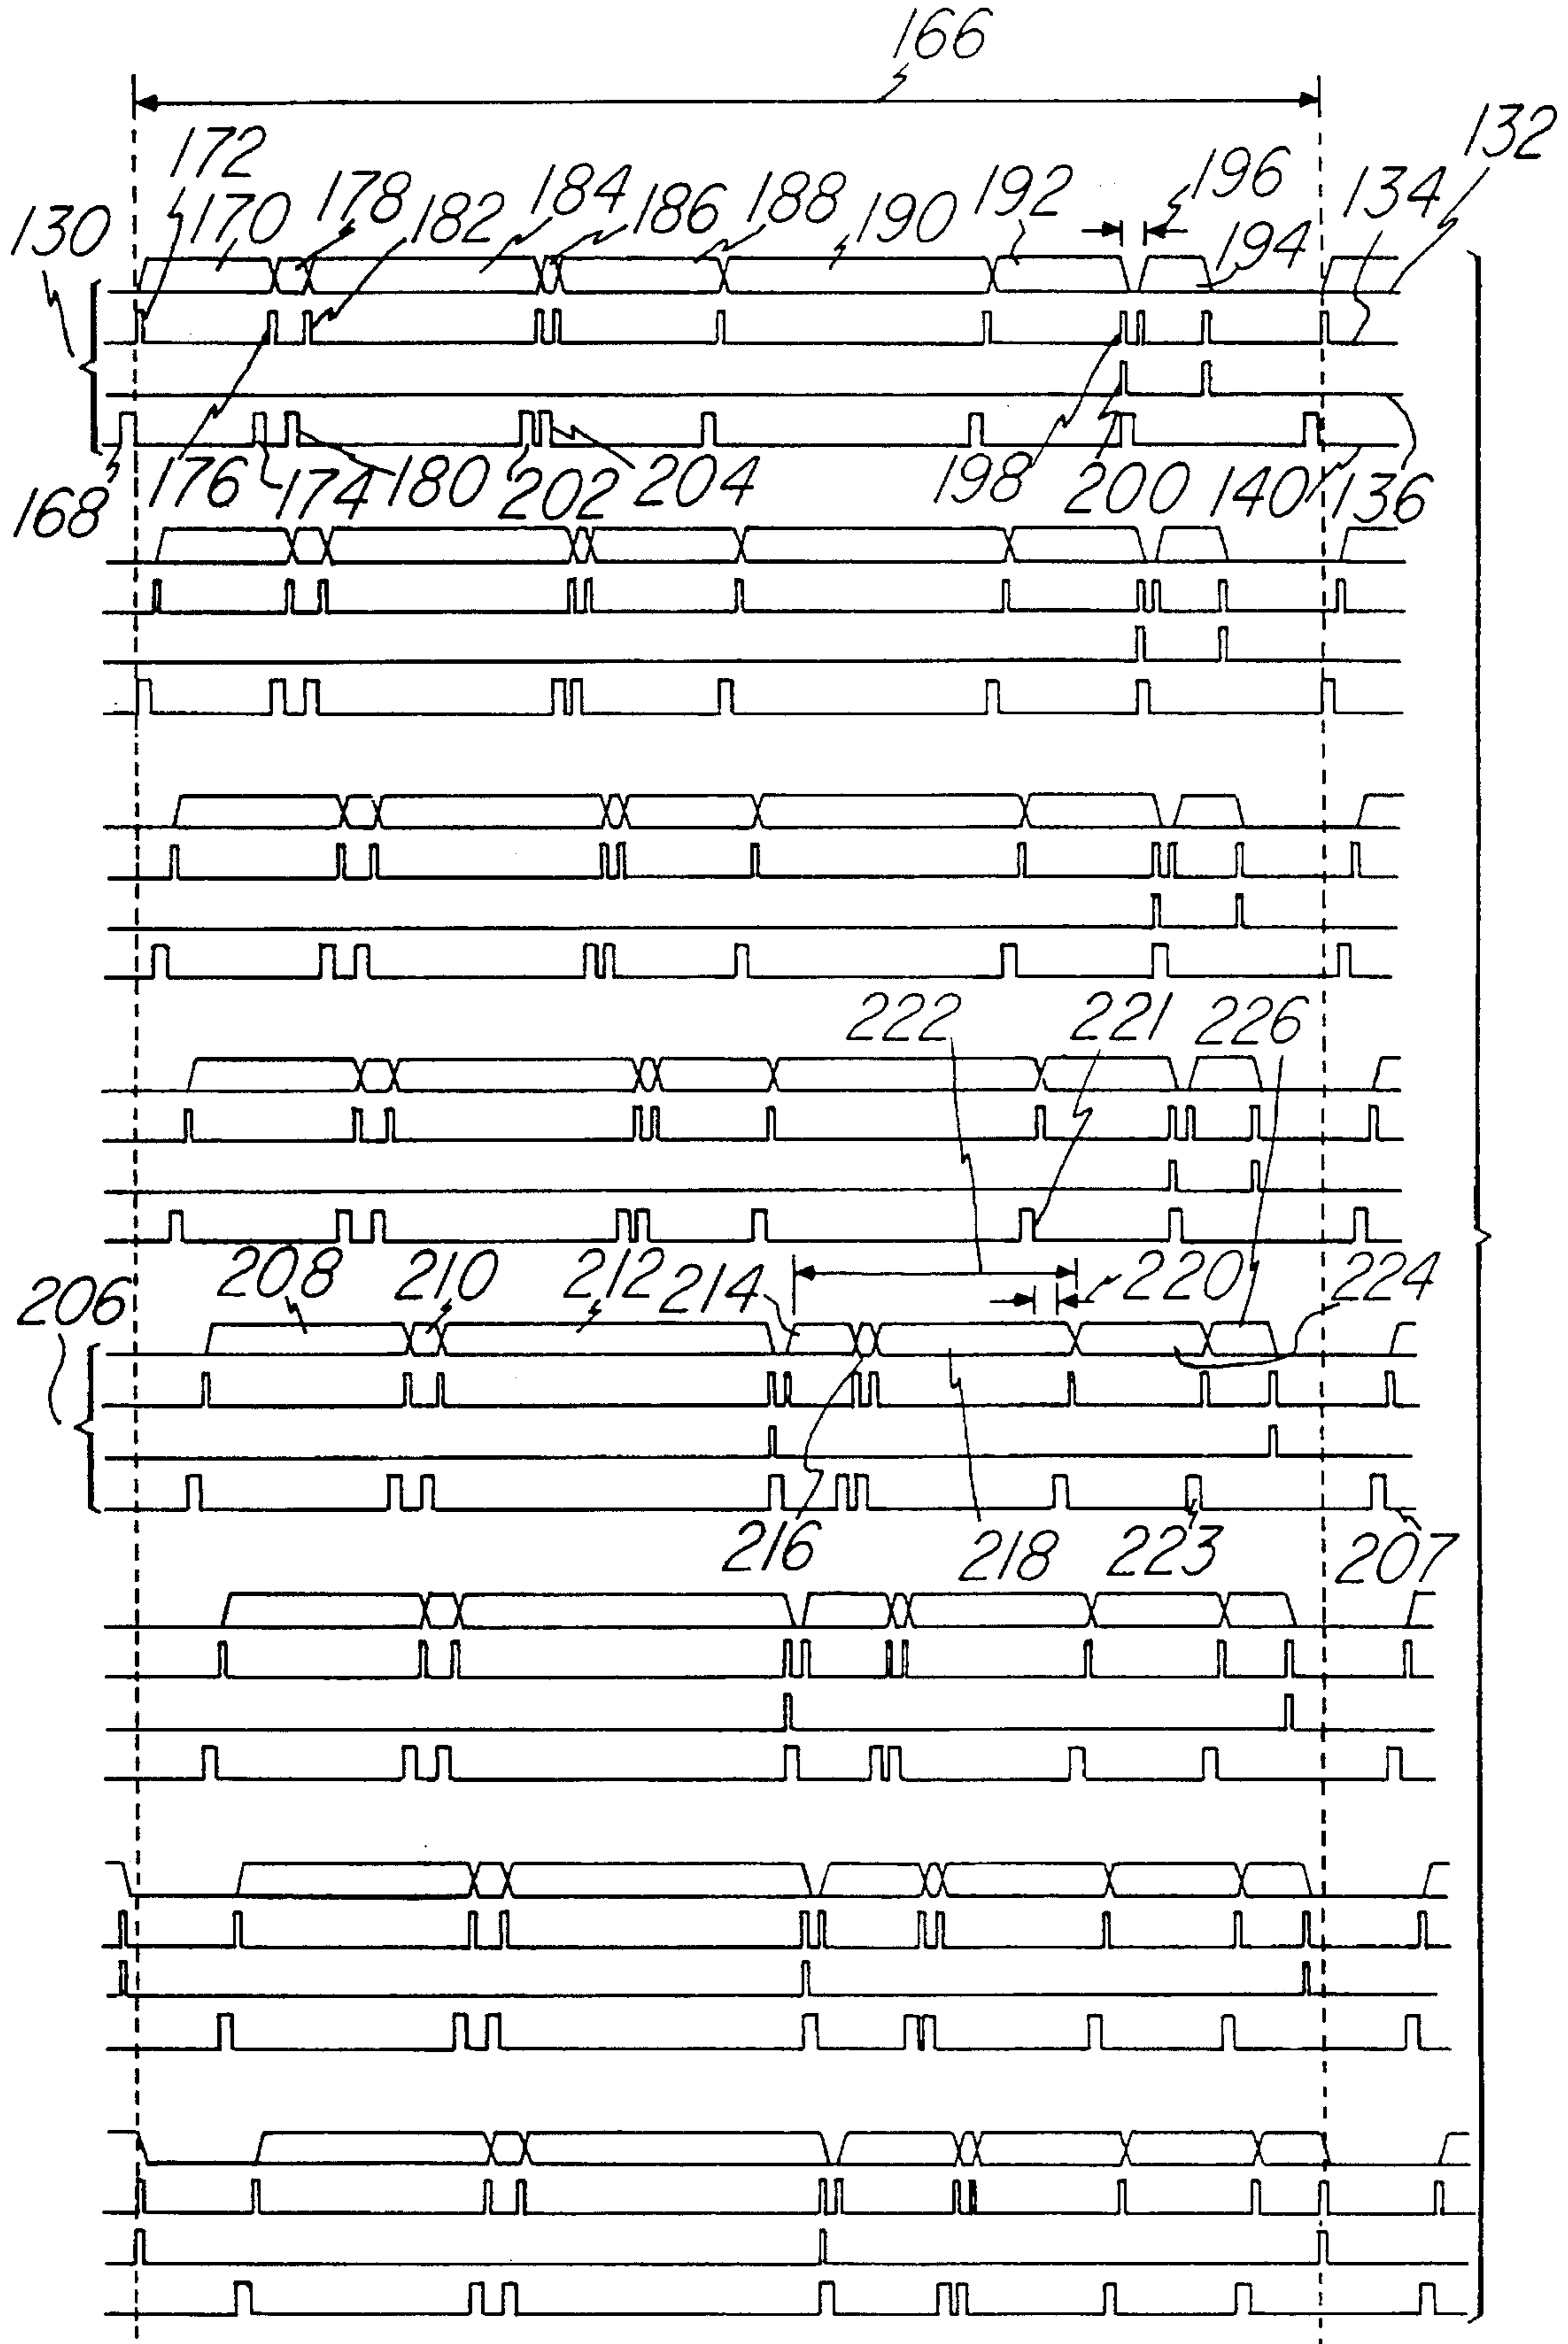 166
172
132
170
178
184
186
188
192
196
134
130
182
190
194
168
176
174
180
202
204
198
200
140
136
222
221
226
206
208
210
212
214
220
224
216
218
223
207